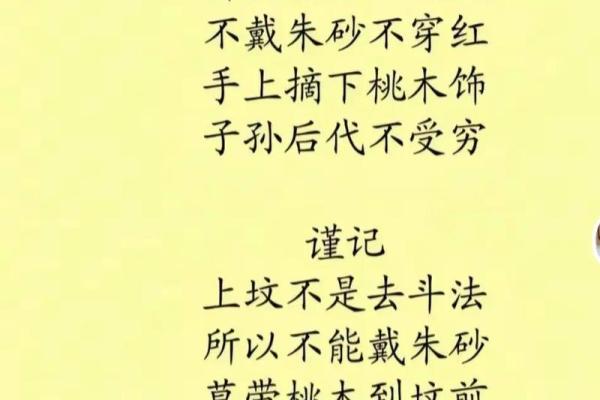 不戴朱砂不穿红
手上摘下桃木饰
子孙后代不受穷
谨记
上坟不是去斗法
所以不能戴朱砂
莫带桃木到坟前